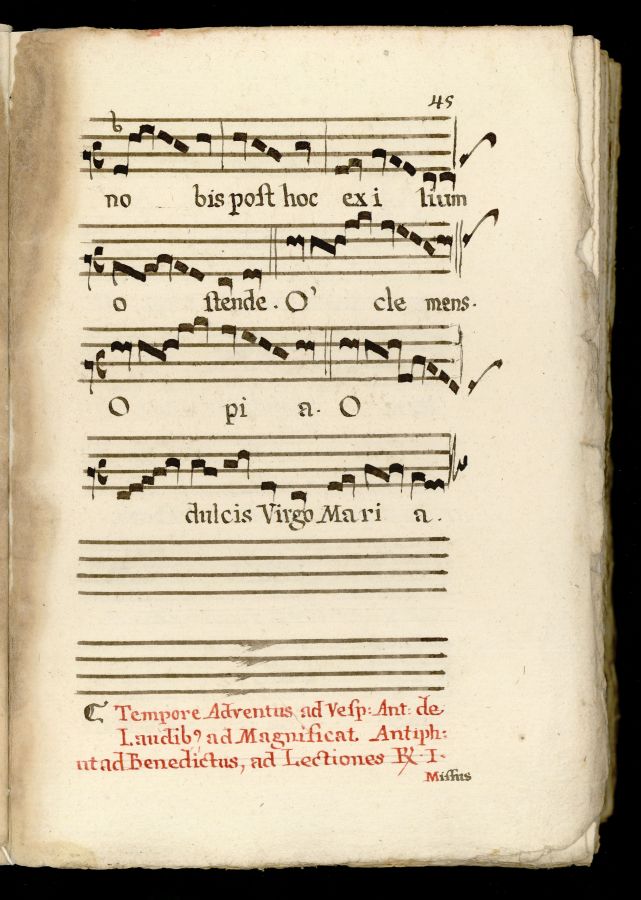 45
no bis poſt hoc ex i lium
o ſtende. O' cle mens.
O pi a. O
dulcis Virgo Ma ri a.
Tempore Adventus ad Veſp: Ant: de
Laudib⁹ ad Magnificat Antiph:
ut ad Benedictus, ad Lectiones ℟ I.
Miſſus